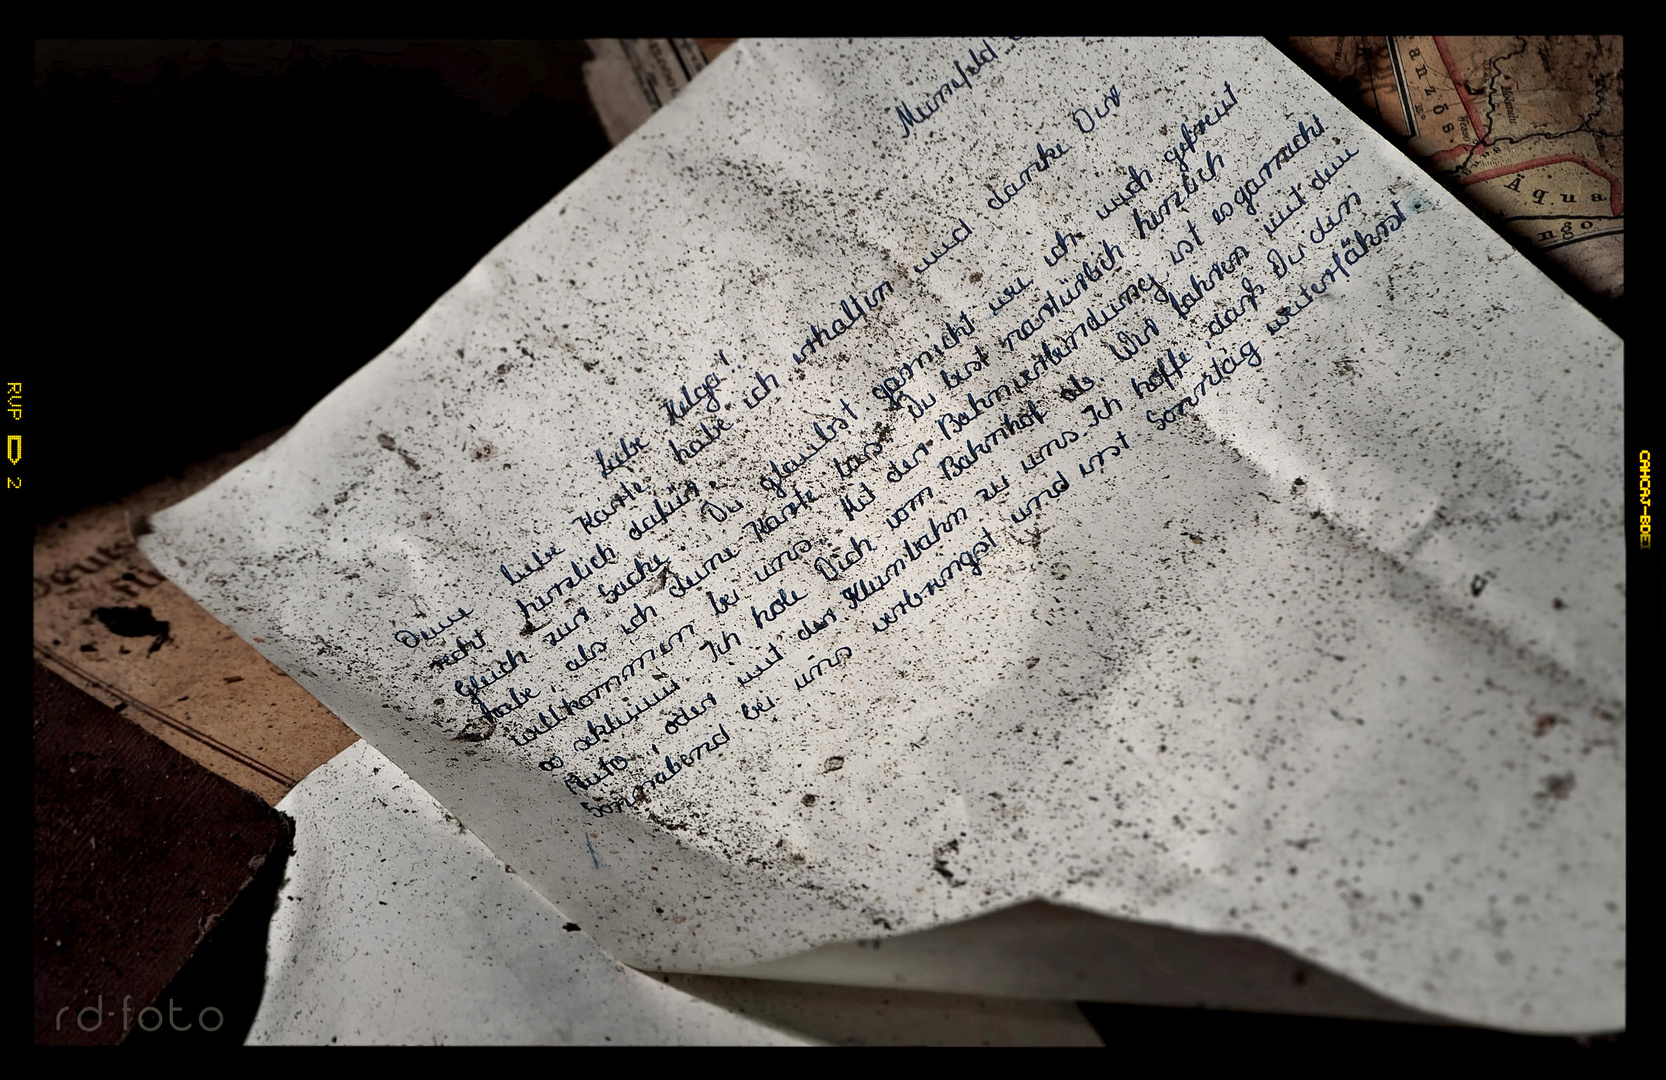 Liebe Helga!
Deine liebe Karte habe ich erhalten und danke Dir
recht herzlich dafür.
Gleich zur Sache. Du glaubst garnicht wie ich mich gefreut
habe, als ich deine Karte las. Du bist natürlich herzlich
willkommen bei uns. Mit der Bahnverbindung ist es garnicht
so schlimm. Ich hole Dich vom Bahnhof ab. Wir fahren mit dem
Auto, oder mit der Kleinbahn zu uns. Ich hoffe, dass Du den
Sonnabend bei uns verbringst und erst Sonntag weiterfährst.
anzös
Äqua
ngo
RVP
2
rd-foto